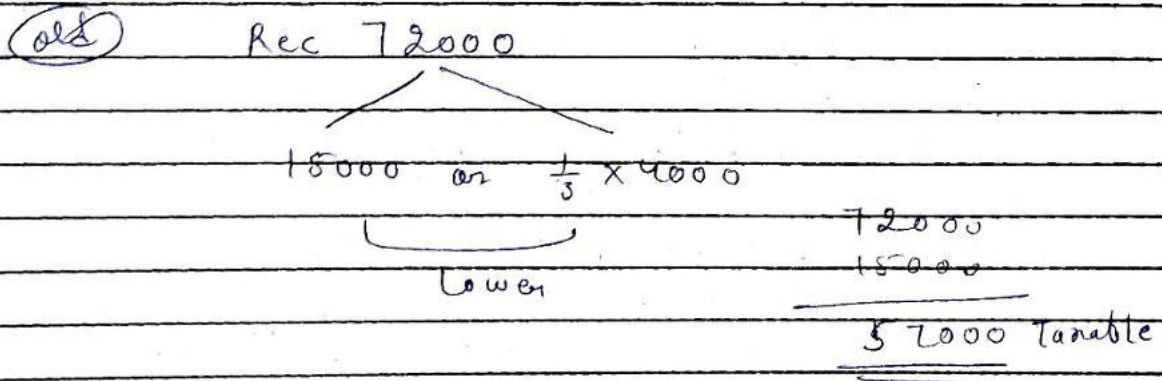 old Rec 72000
15000 or 1/3 × 4000
72000
15000
Lower
57000 Taxable